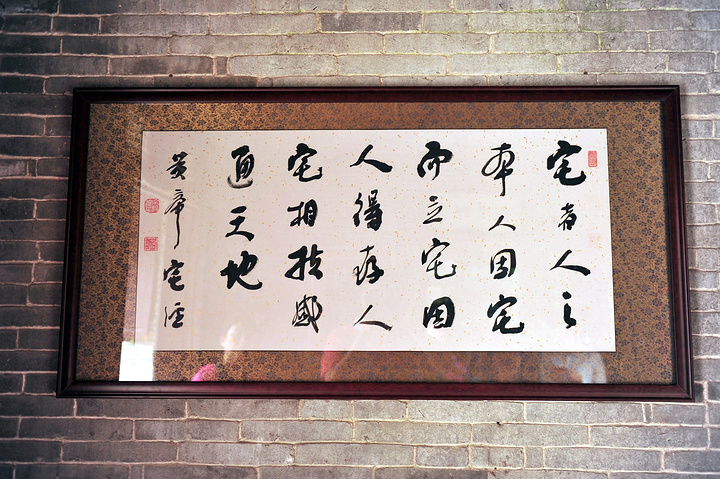 宅者人之
本人因宅
而立宅因
人得存人
宅相扶感
通天地
黄帝宅经